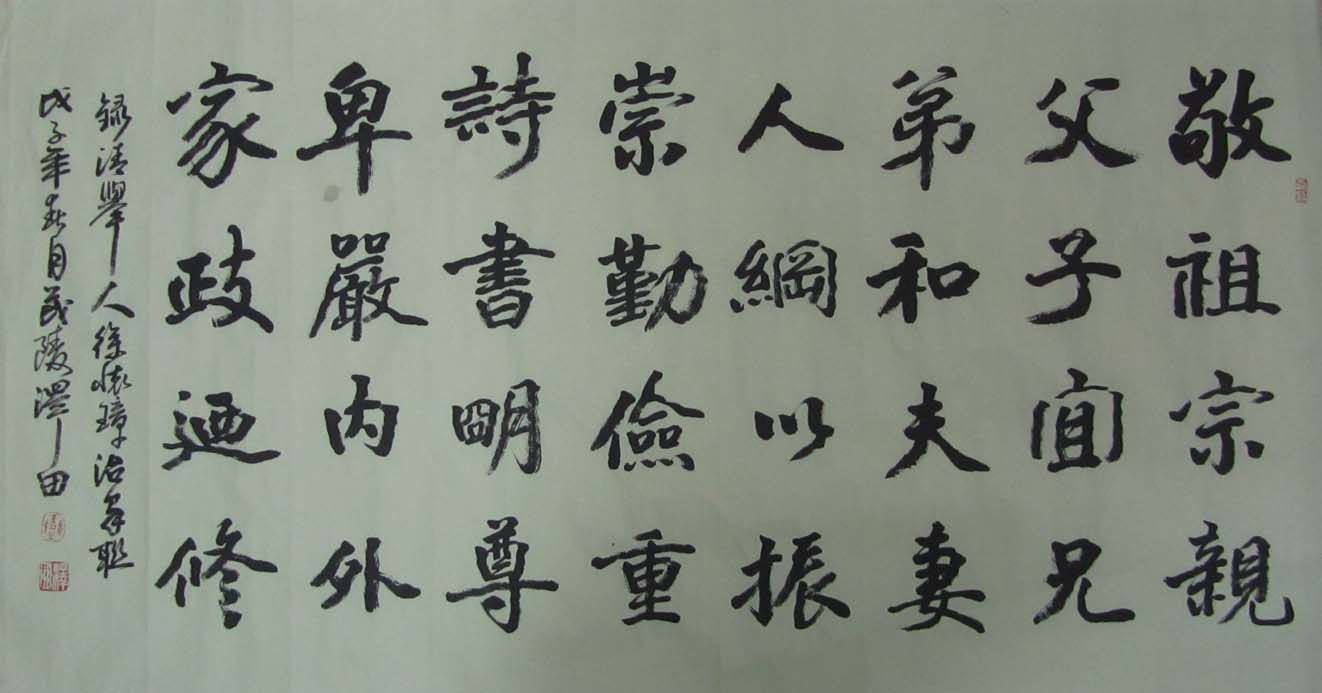 敬祖宗親
父子宜兄
弟和夫妻
人綱以振
崇勤儉重
詩書明尊
卑嚴內外
家政迺修
錄清舉人徐懷璋治家聯
戊子年春月茂陵澤田